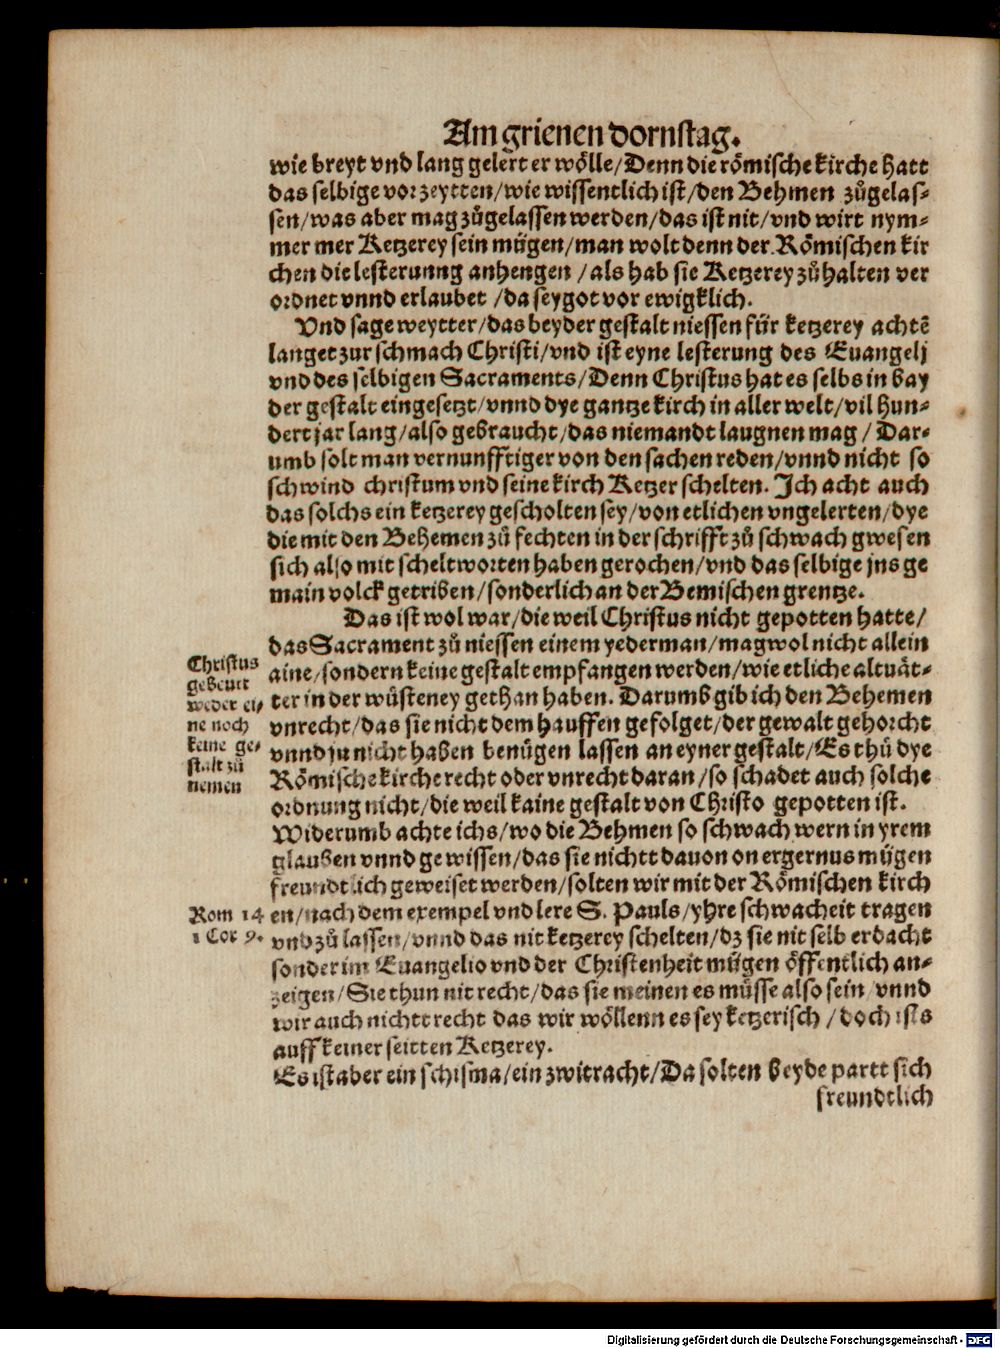 Am grienen dornstag.
wie breyt vnd lang gelert er wölle/Denn die römische kirche hatt
das selbige vorzeytten/wie wissentlich ist/den Behmen zůgelas-
sen/was aber mag zůgelassen werden/das ist nit/vnd wirt nym-
mer mer Ketzerey sein mügen/man wolt denn der Römischen kir
chen die lesterunng anhengen /als hab sie Ketzerey zů halten ver
ordnet vnnd erlaubet /da sey got vor ewigklich.
Vnd sage weytter/das beyder gestalt niessen für ketzerey achtē
langet zur schmach Christi/vnd ist eyne lesterung des Euangelj
vnd des selbigen Sacraments/Denn Christus hat es selbs in bay
der gestalt eingesetzt/vnnd dye gantze kirch in aller welt/vil hun-
dert jar lang/also gebraucht/das niemandt laugnen mag / Dar-
umb solt man vernunfftiger von den sachen reden/vnnd nicht so
schwind christum vnd seine kirch Ketzer schelten. Ich acht auch
das solchs ein ketzerey gescholten sey/von etlichen vngelerten/dye
die mit den Behemen zů fechten in der schrifft zů schwach gwesen
sich also mit scheltworten haben gerochen/vnd das selbige jns ge
main volck getriben/sonderlich an der Bemischen grentze.
Das ist wol war/die weil Christus nicht gepotten hatte/
das Sacrament zů niessen einem yederman/mag wol nicht allein
aine/sondern keine gestalt empfangen werden/wie etliche altuät-
ter in der wüsteney gethan haben. Darumb gib ich den Behemen
vnrecht/das sie nicht dem hauffen gefolget/der gewalt gehorcht
vnnd ju nicht haben benügen lassen an eyner gestalt/Es thů dye
Römische kirche recht oder vnrecht daran/so schadet auch solche
ordnung nicht/die weil kaine gestalt von Christo gepotten ist.
Widerumb achte ichs/wo die Behmen so schwach wern in yrem
glauben vnnd gewissen/das sie nichtt dauon on ergernus mügen
freundtlich geweiset werden/solten wir mit der Römischen kirch
en/nach dem exempel vnd lere S. Pauls/yhre schwacheit tragen
vnd zů lassen/vnnd das nit ketzerey schelten/dz sie nit selb erdacht
sonder im Euangelio vnd der Christenheit mügen öffentlich an-
zeigen/Sie thun nit recht/das sie meinen es müsse also sein/vnnd
wir auch nichtt recht das wir wöllenn es sey ketzerisch /doch ists
auff keiner seitten Ketzerey.
Es ist aber ein schisma/ein zwitracht/Da solten beyde partt sich
freundtlich
Christus
gebeutt
weder ei-
ne noch
keine ge-
stalt zů
nemen
Rom 14
1 Cor 9.
Digitalisierung gefördert durch die Deutsche Forschungsgemeinschaft - DFG